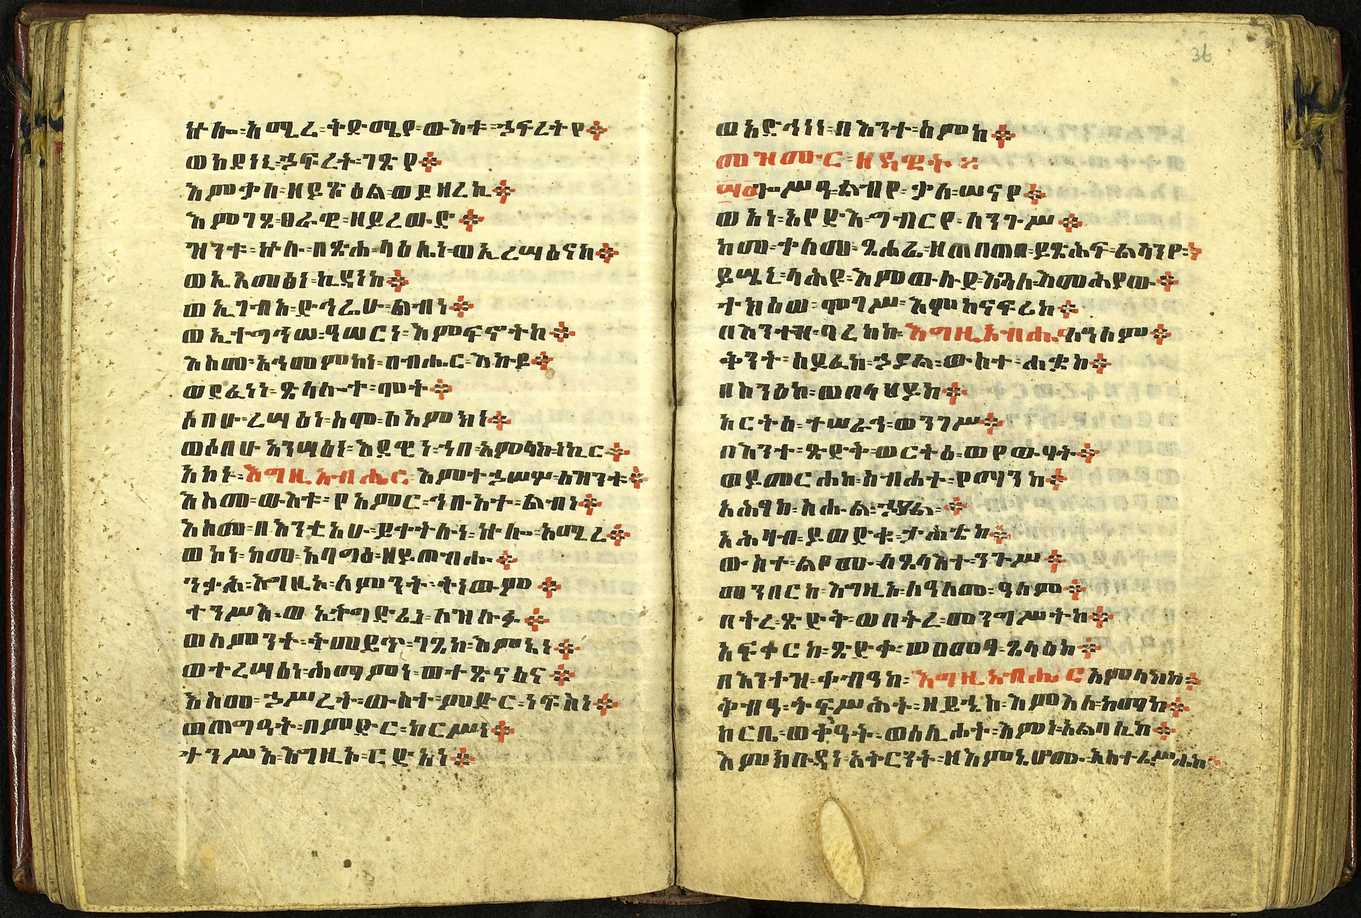 ኵሎ፡ አሚረ፡ ቅድሜየ፡ ውእቱ፡ ኃፍረትየ።
ወከደነኒ፡ ኃፍረተ፡ ገጽየ።
እምቃለ፡ ዘይጽዕል፡ ወይዘረኪ።
እምገጸ፡ ፀራዊ፡ ዘይረውድ።
ዝንቱ፡ ኵሉ፡ በጽሐ፡ ላዕሌነ፡ ወኢረሣዕናከ።
ወኢአመፅነ፡ ኪዳነከ።
ወኢገብአ፡ ድኅሬሁ፡ ልብነ።
ወኢተግኅሠ፡ ዓሠርነ፡ እምፍኖትከ።
እስመ፡ አኅመምከነ፡ በብሔር፡ እኩይ።
ወደፈነነ፡ ጽላሎተ፡ ሞት።
ሶበሁ፡ ረሣዕነ፡ ስሞ፡ ለአምላክነ።
ወሶበሁ፡ አንሣዕነ፡ እደዊነ፡ ኀበ፡ አምላክ፡ ነኪር።
አኮኑ፡ እግዚአብሔር፡ እምተኃሠሦ፡ ለዝንቱ።
እስመ፡ ውእቱ፡ የአምር፡ ኅቡአተ፡ ልብነ።
እስመ፡ በእንቲአሁ፡ ይቀትሉነ፡ ኵሎ፡ አሚረ።
ወኮነ፡ ከመ፡ አባግዕ፡ ዘይጠብሑ።
ንቃሕ፡ እግዚኦ፡ ለምንት፡ ትነውም።
ተንሥእ፡ ወኢትግድፈነ፡ ለዝሉፉ።
ወለምንተ፡ ትመይጥ፡ ገጸከ፡ እምኔነ።
ወትረሣዕነ፡ ሕማምነ፡ ወተጽናሰነ።
እስመ፡ ኃሥረት፡ ውስተ፡ ምድር፡ ነፍስነ።
ወጠግዓት፡ በምድር፡ ከርሥነ።
ተንሥእ፡ እግዚኦ፡ ርድአነ።
36
ወአድኅነነ፡ በእንተ፡ ስምከ።
መዝሙር፡ ዘዳዊት።
ጐሥዓ፡ ልብየ፡ ቃለ፡ ሠናየ።
ወአነ፡ አየድእ፡ ግብርየ፡ ለንጉሥ።
ከመ፡ ቀለመ፡ ጸሐፊ፡ ዘጠበጠበ፡ ይጽሕፍ፡ ልሳንየ።
ይሤኒ፡ ላሕዩ፡ እምውሉደ፡ እጓለ፡ እመሕያው።
ተክዕወ፡ ሞገሥ፡ እምከናፍሪከ።
በእንተዝ፡ ባረከከ፡ እግዚአብሔር፡ ለዓለም።
ቅንት፡ ሰይፈከ፡ ኃያል፡ ውስተ፡ ሐቌከ።
በስንዕከ፡ ወበላህይከ።
አርትዕ፡ ተሠራኅ፡ ወንግሥ።
በእንተ፡ ጽድቅ፡ ወርትዕ፡ ወየውሃት።
ወይመርሐከ፡ ስብሐተ፡ የማንከ።
አሕፃከ፡ ስሑል፡ ኃያል።
አሕዛብ፡ ይወድቁ፡ ታሕቴከ።
ውስተ፡ ልቦሙ፡ ለፀላእተ፡ ንጉሥ።
መንበርከ፡ እግዚኦ፡ ለዓለመ፡ ዓለም።
በትረ፡ ጽድቅ፡ ወበትረ፡ መንግሥትከ።
አፍቀርከ፡ ጽድቀ፡ ወዐመፃ፡ ጸላዕከ።
በእንተዝ፡ ቀብዓከ፡ እግዚአብሔር፡ አምላክከ።
ቅብዓ፡ ትፍሥሕት፡ እምእለ፡ ከማከ።
ከርቤ፡ ወቀንዓት፡ ወሰሊሖት፡ እምነ፡ አልባሲከ።
እምክቡዳነ፡ አቅርንት፡ ዘእምኔሆሙ፡ አስተፌሥሑከ።